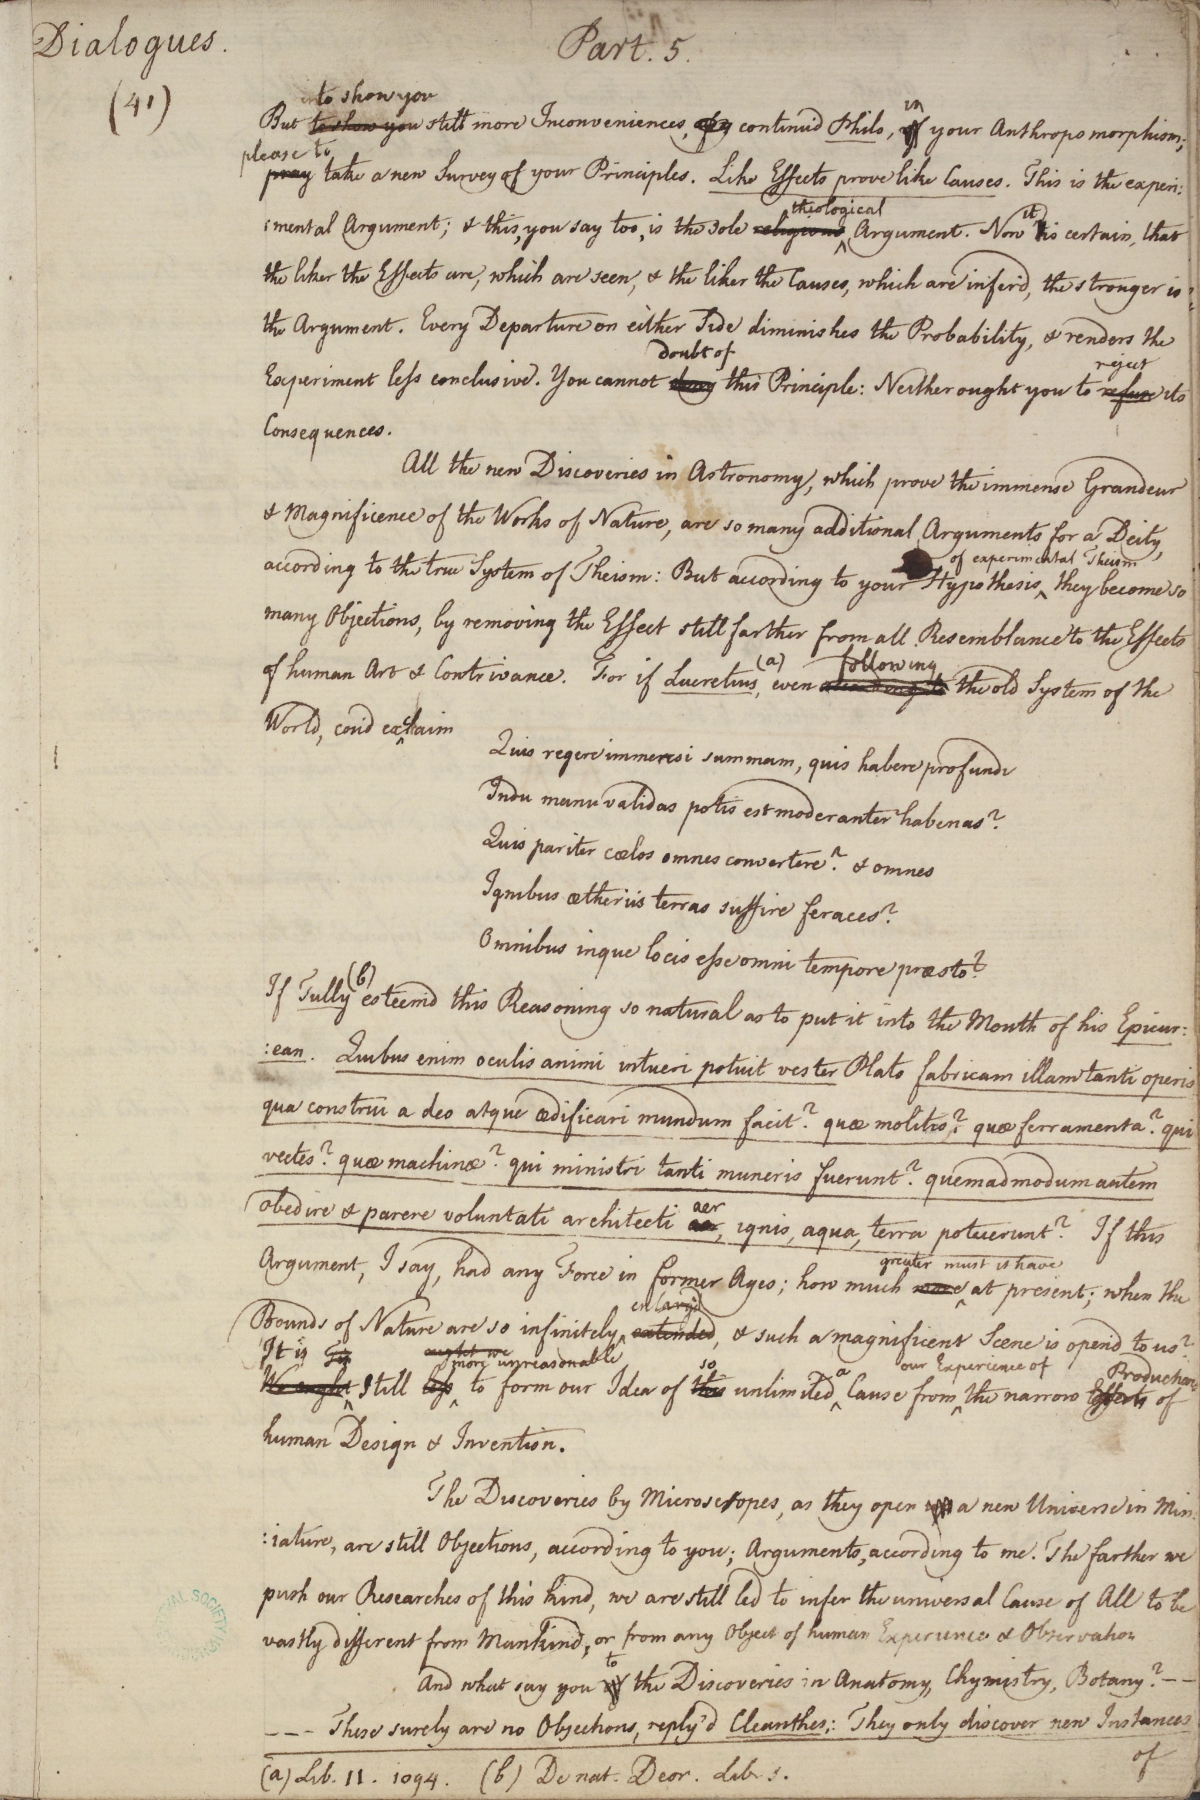 Dialogues.
Part. 5.
(41)
to show you
But to show you still more Inconveniences, continu'd Philo, in your Anthropomorphism;
please to
pray take a new Survey of your Principles. Like Effects prove like Causes. This is the experi:
:mental Argument; & this, you say too, is the sole religious theological Argument. Now it is certain, that
the liker the Effects are, which are seen, & the liker the Causes, which are infer'd, the stronger is
the Argument. Every Departure on either Side diminishes the Probability, & renders the
doubt of reject
Experiment less conclusive. You cannot deny this Principle: Neither ought you to refuse its
Consequences.
All the new Discoveries in Astronomy, which prove the immense Grandeur
& Magnificence of the Works of Nature, are so many additional Arguments for a Deity,
of experimental Theism
according to the true System of Theism: But according to your Hypothesis, they become so
many Objections, by removing the Effect still farther from all Resemblance to the Effects
following
of human Art & Contrivance. For if Lucretius, (a) even according to the old System of the
World, cou'd exclaim
Quis regere immensi summam, quis habere profundi
Indu manu validas potis est moderanter habenas?
Quis pariter cœlos omnes convertere? & omnes
Ignibus ætheriis terras suffire feraces?
Omnibus inque locis esse omni tempore præsto?
If Tully (b) esteem'd this Reasoning so natural as to put it into the Mouth of his Epicur:
:ean. Quibus enim oculis animi intueri potuit vester Plato fabricam illam tanti operis
qua construi a deo atque ædificari mundum facit? quæ molitio? quæ ferramenta? qui
vectes? quæ machinæ? qui ministri tanti muneris fuerunt? quemadmodum autem
aer
obedire & parere voluntati architecti aer, ignis, aqua, terra potuerunt? If this
greater must it have
Argument, I say, had any Force in former Ages; how much more at present; when the
enlarg'd
Bounds of Nature are so infinitely extended, & such a magnificent Scene is open'd to us?
It is ought we more unreasonable so a our Experience of Productions
We ought still less to form our Idea of this unlimited Cause from the narrow Effects of
human Design & Invention.
The Discoveries by Microscopes, as they open a new Universe in Min:
:iature, are still Objections, according to you; Arguments, according to me. The farther we
push our Researches of this kind, we are still led to infer the universal Cause of All to be
vastly different from Mankind, or from any Object of human Experience & Observation
to
And what say you the Discoveries in Anatomy, Chymistry, Botany?--
--- These surely are no Objections, reply'd Cleanthes: They only discover new Instances
of
(a) Lib. 11. 1094. (b) De nat. Deor. Lib. 1.